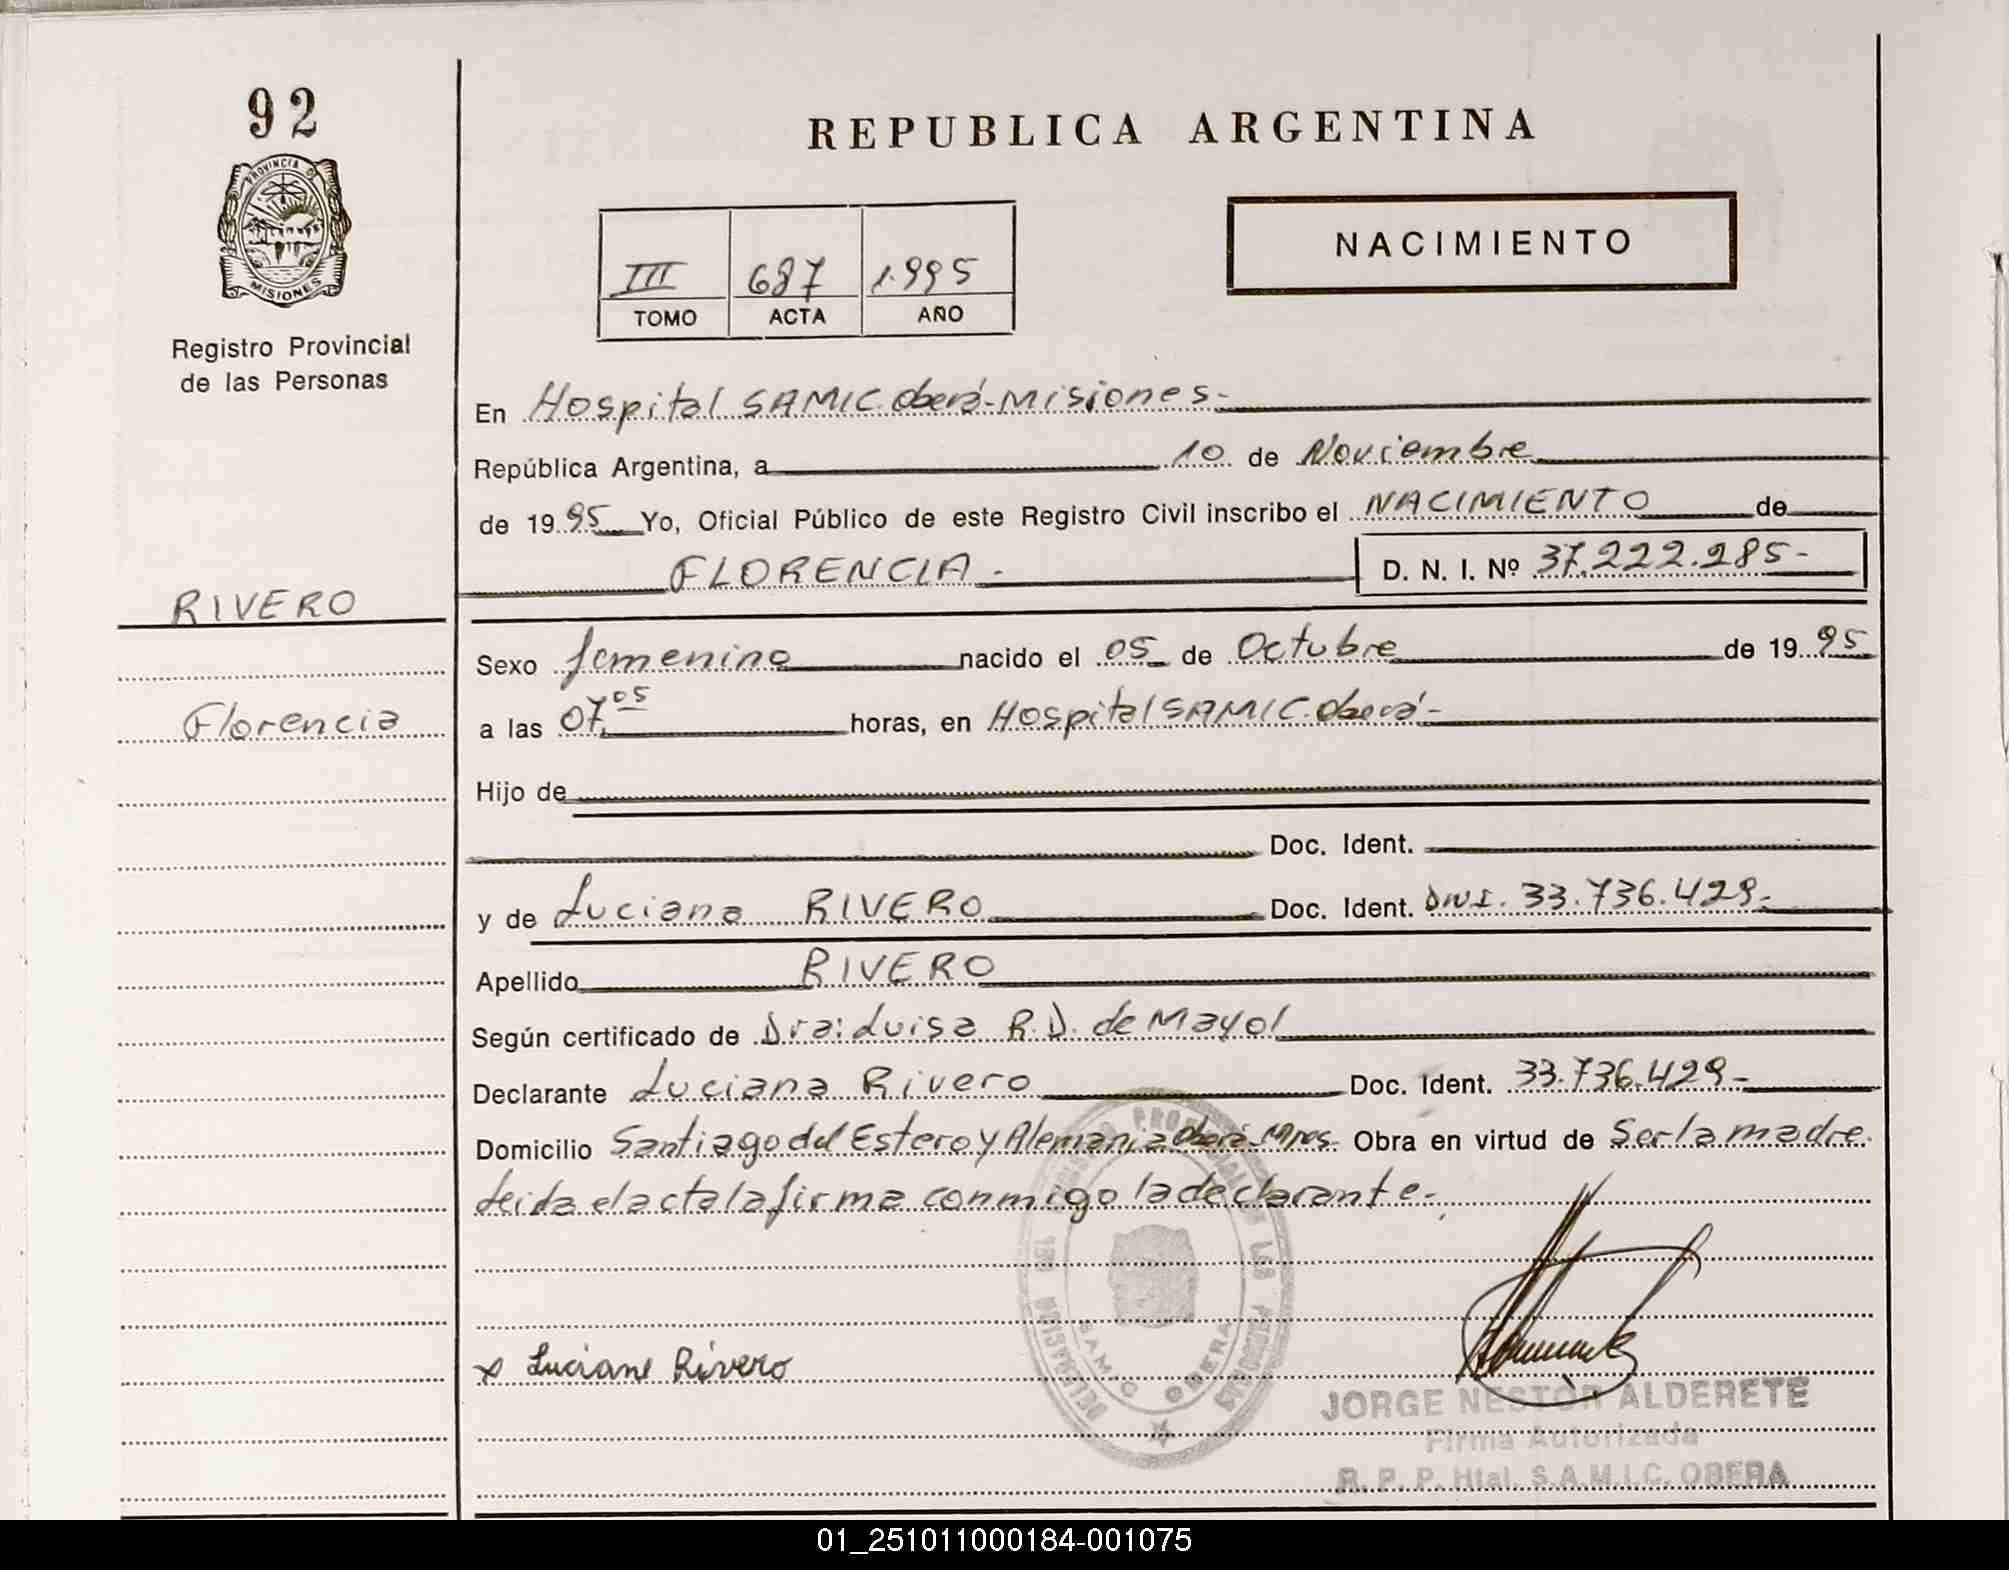 92
PROVINCIA DE
MISIONES
Registro Provincial
de las Personas
REPUBLICA ARGENTINA
III 687 1.995
TOMO ACTA AÑO
NACIMIENTO
En Hospital SAMIC. Oberá-Misiones-
República Argentina, a 10 de Noviembre
de 1995 Yo, Oficial Público de este Registro Civil inscribo el NACIMIENTO de
FLORENCIA.- D. N. I. Nº 37.222.285-
RIVERO
Sexo femenino nacido el 05 de Octubre de 1995
Florencia
a las 07,05 horas, en Hospital SAMIC. Oberá-
Hijo de
Doc. Ident.
y de Luciana RIVERO Doc. Ident. DNI. 33.736.429-
Apellido RIVERO
Según certificado de Dra: Luisa R.D. de Mayol
Declarante Luciana Rivero Doc. Ident. 33.736.429-
Domicilio Santiago del Estero y Alemania Oberá-Mnes. Obra en virtud de Ser la madre.
Leida el acta la firma conmigo la declarante-.
x Luciane Rivero
DELEGACION REGISTRO PROVINCIAL DE LAS PERSONAS
S.A.M.I.C. OBERA
JORGE NESTOR ALDERETE
Firma Autorizada
R. P. P. Htal. S.A.M.I.C. OBERA
01_251011000184-001075